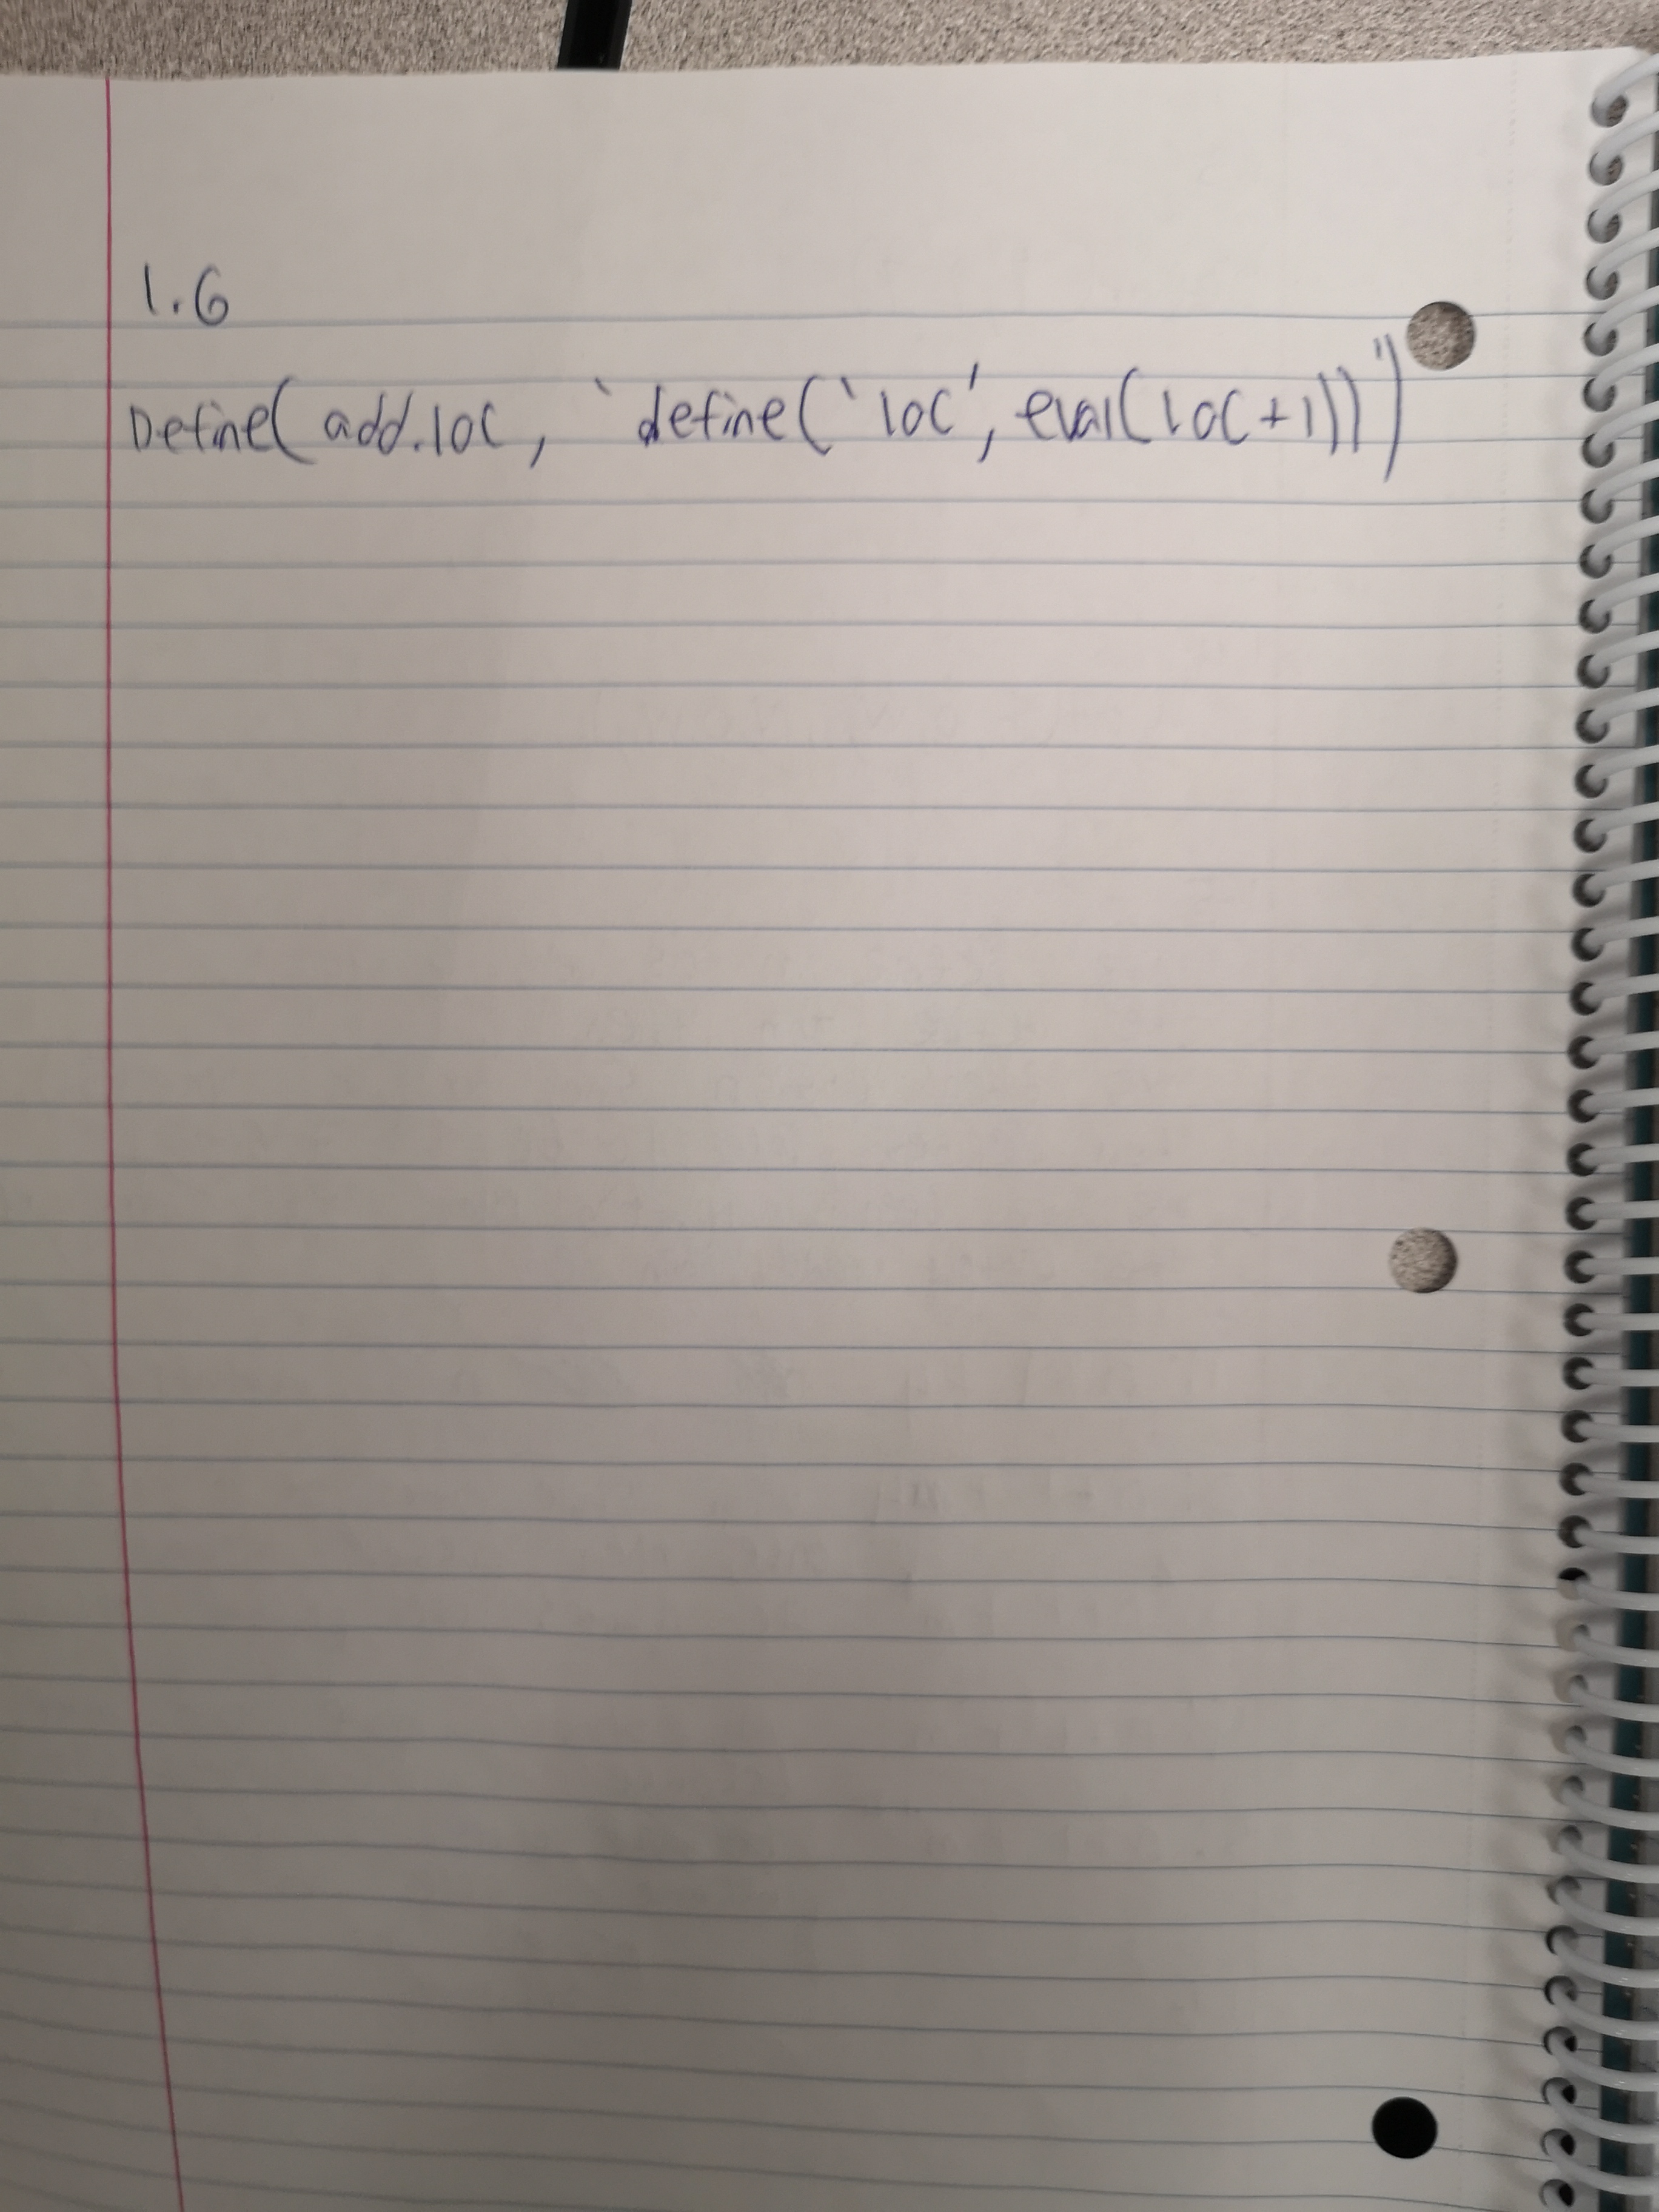 1.6
Define( add.loc, `define(`loc', eval(loc+1))")